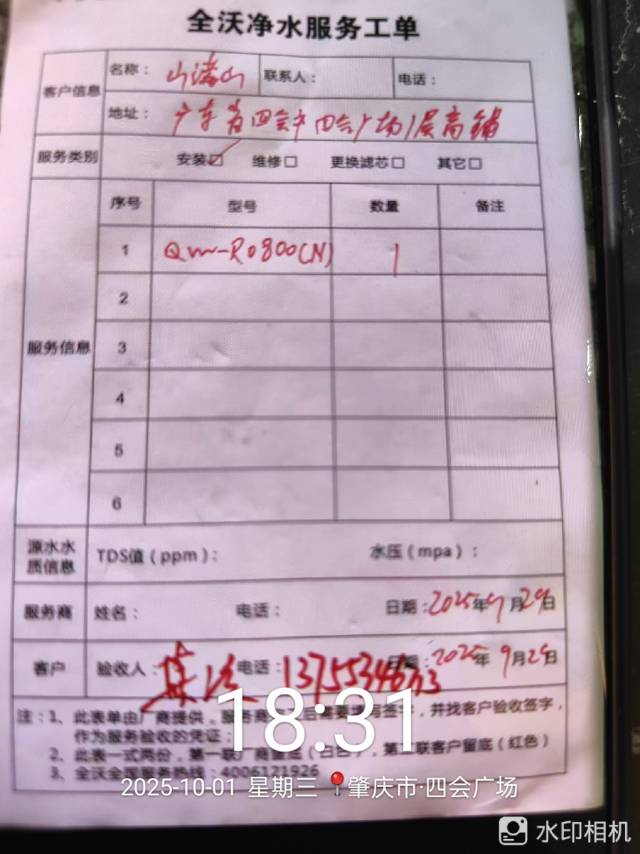 全沃净水服务工单
客户信息
名称：山渚山 联系人： 电话：
地址：广东省四会市四会广场1层商铺
服务类别 安装☑ 维修□ 更换滤芯□ 其它□
服务信息
序号 型号 数量 备注
1 QW-R0800(N) 1
2
3
4
5
6
源水水质信息 TDS值（ppm）： 水压（mpa）：
服务商 姓名： 电话： 日期：2025年9月29日
客户 验收人： 电话： 日期：2025年9月29日
注：1、此表单由厂商提供，服务商 ，并找客户验收签字，
作为服务验收的凭证；
2、此表一式两份，第一联厂商留底（白色），第二联客户留底（红色）
3、全沃全 热线：4006121926
18:31
2025-10-01 星期三 肇庆市·四会广场
水印相机